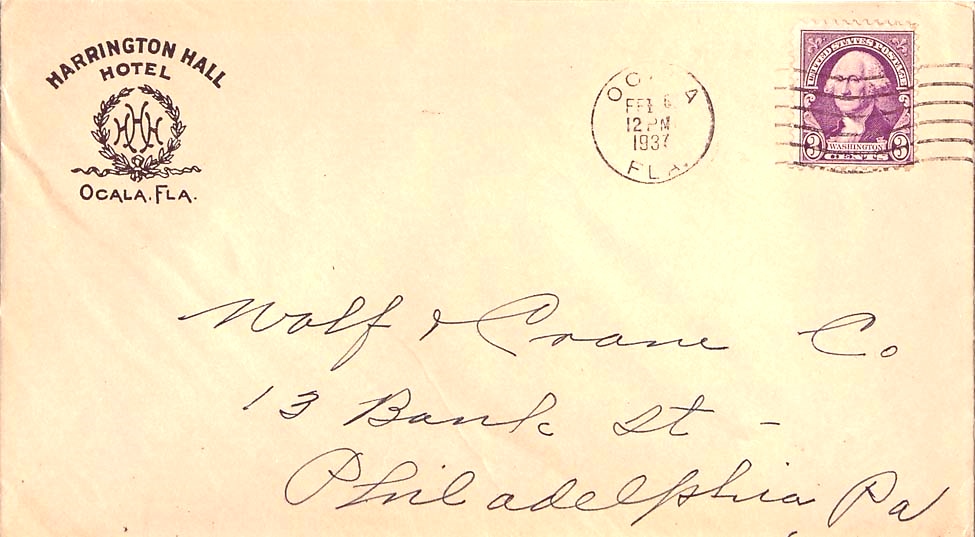 HARRINGTON HALL
HOTEL
HHH
OCALA, FLA.
OCALA
FEB
12 PM
1937
FLA.
UNITED STATES POSTAGE
3 WASHINGTON 3
CENTS
Wolf & Crane Co
13 Bank St -
Philadelphia Pa